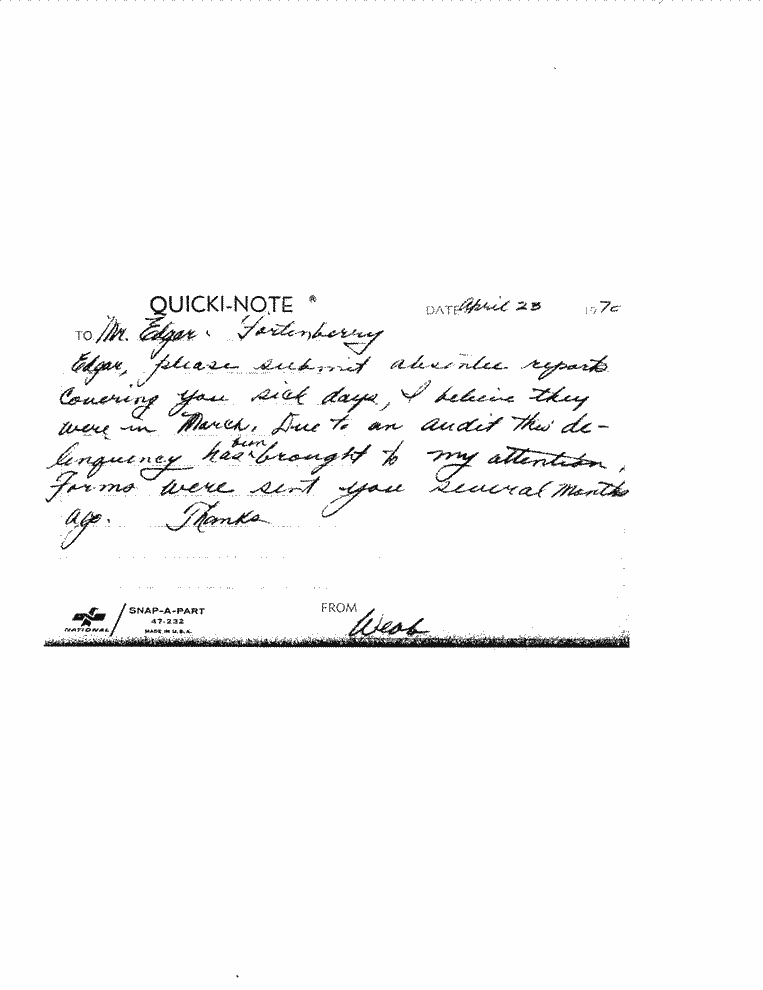 QUICKI-NOTE ®
DATE April 23 1970
TO Mr. Edgar. Fortenberry
Edgar, please submit absentee reports
Covering you sick days, I believe they
were in March. Due to an audit this de-
linquency has been brought to my attention,
Forms were sent you several months
ago. Thanks
NATIONAL
SNAP-A-PART
47-232
MADE IN U.S.A.
FROM Weob